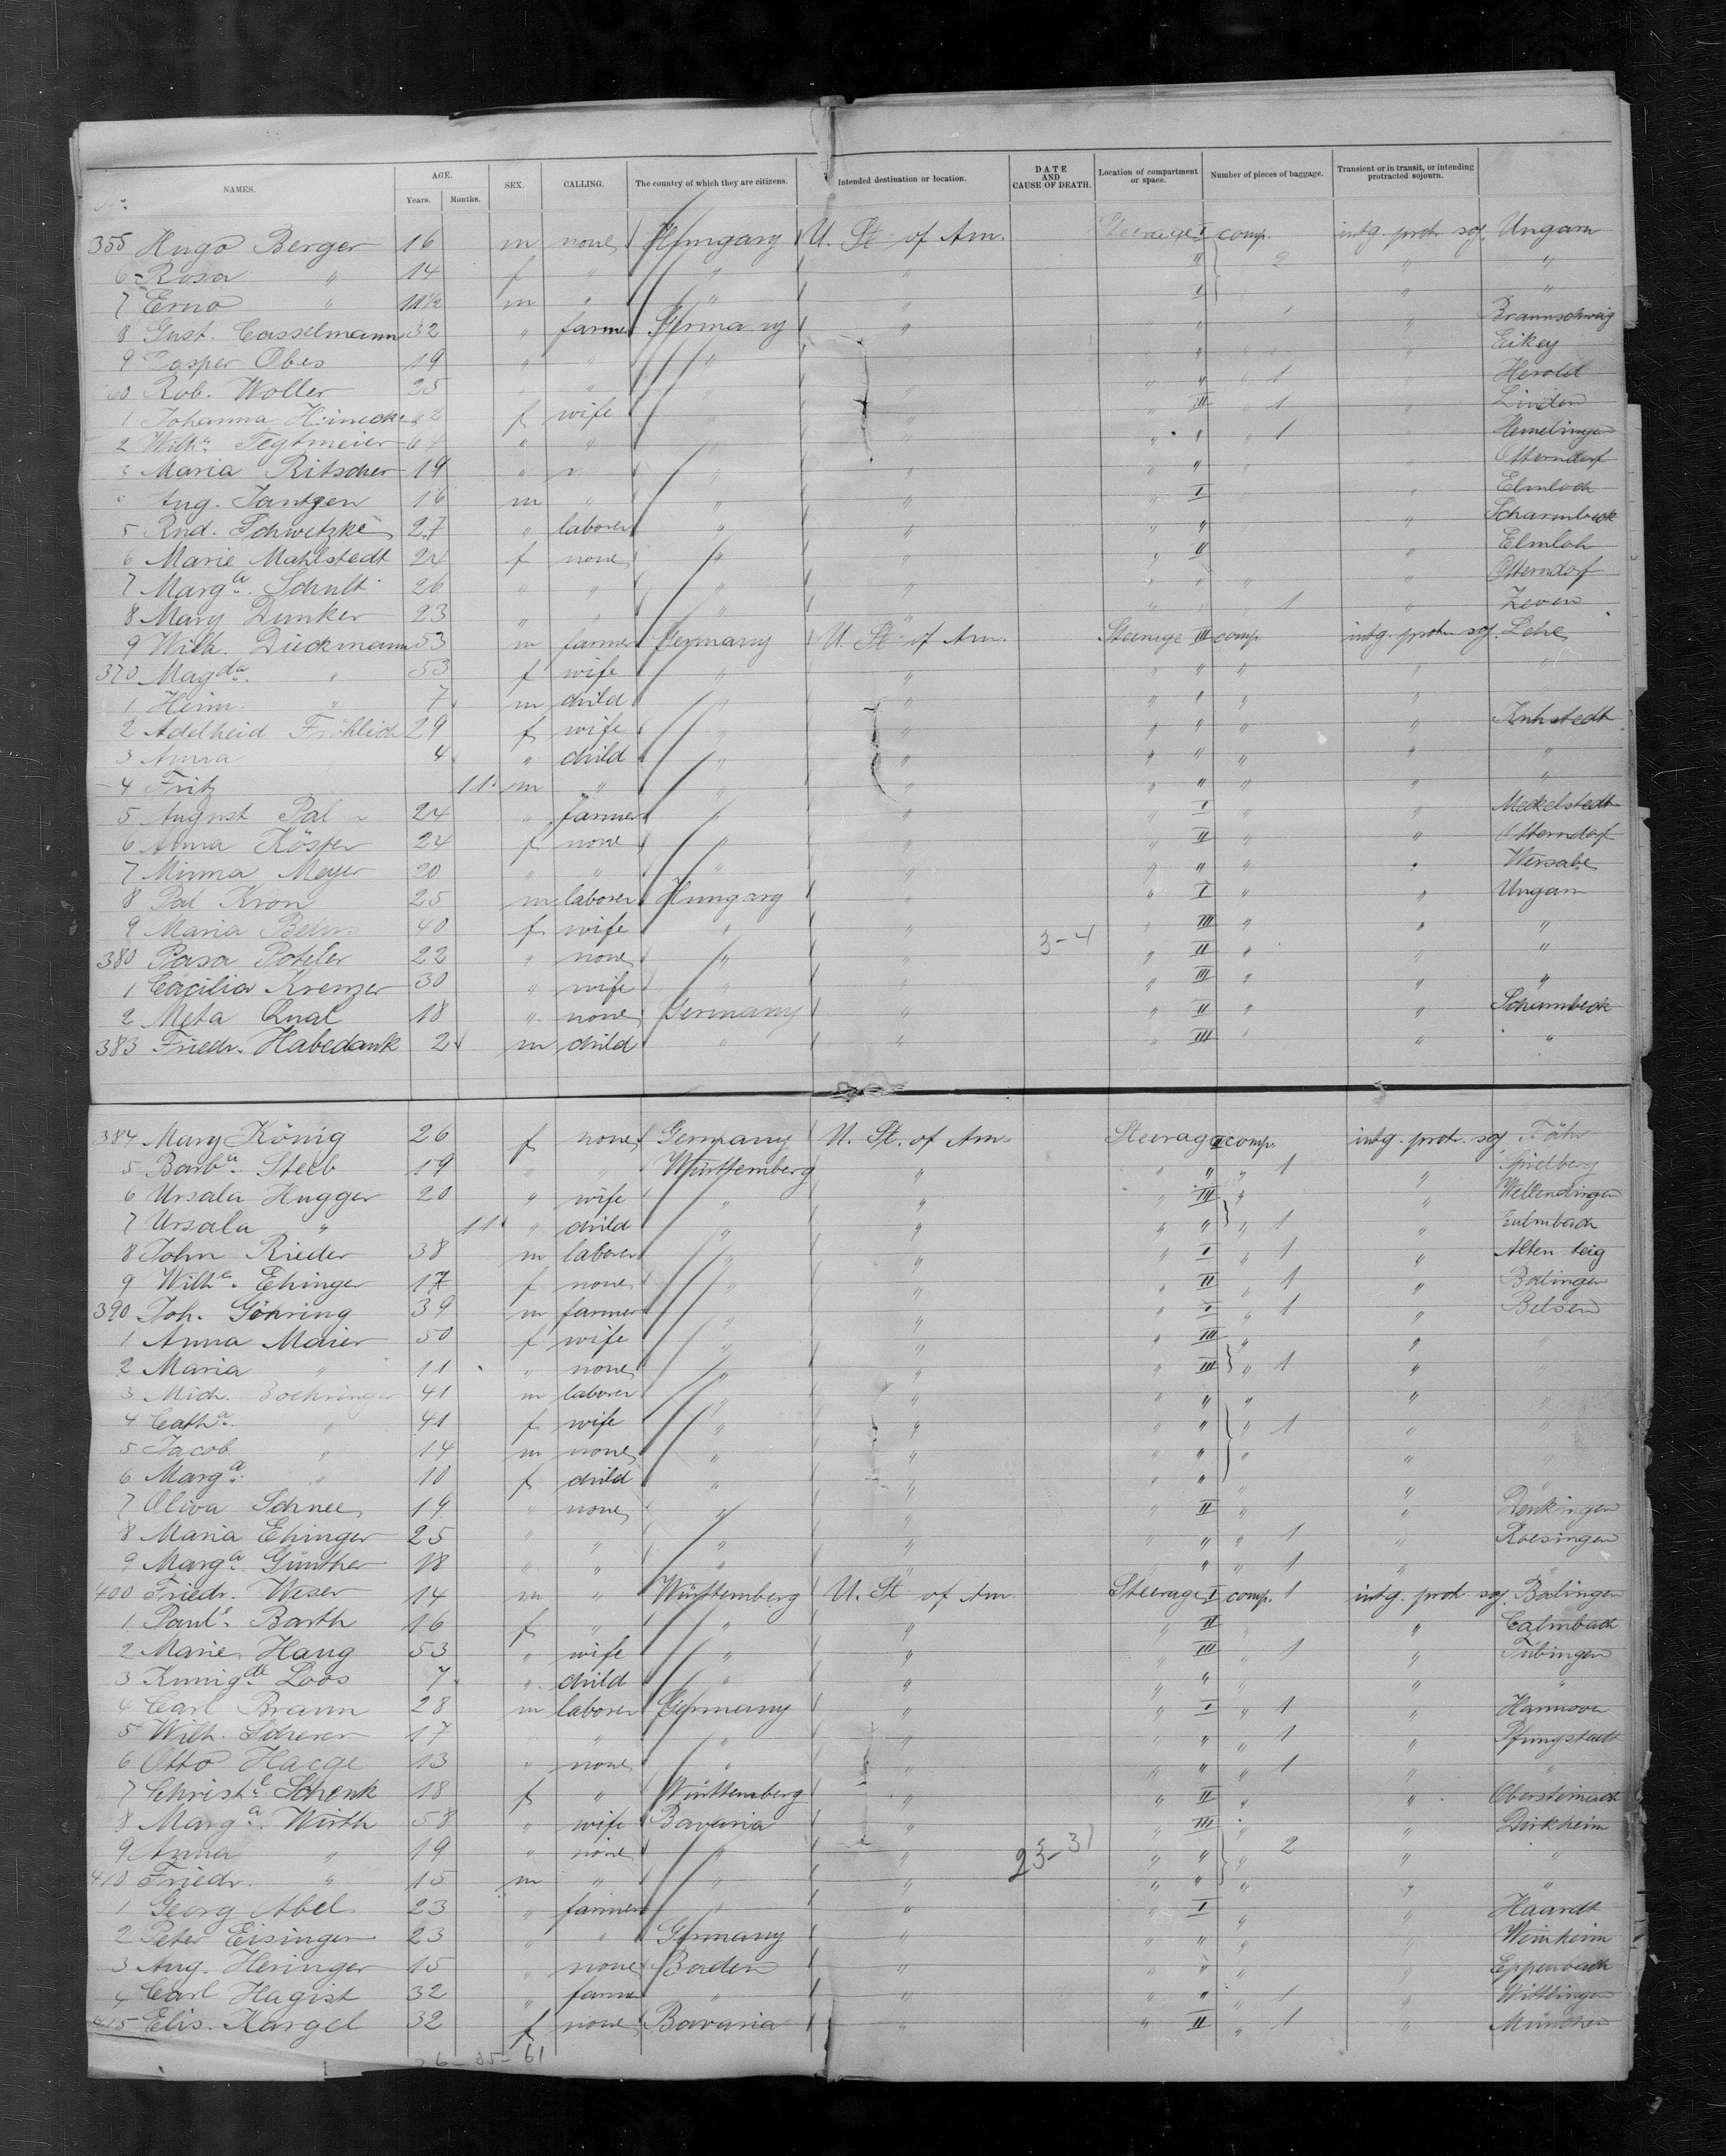 No. NAMES. AGE. Years. Months. SEX. CALLING. The country of which they are citizens. Intended destination or location. DATE AND CAUSE OF DEATH. Location of compartment or space. Number of pieces of baggage. Transient or in transit, or intending protracted sojourn.
355 Hugo Berger 16 m none Hungary U. St. of Am. Steerage I comp. intg. protr. soj. Ungarn
6 Rosa " 14 f " " " " 2 " "
7 Erno " 11½ m " " " I " "
8 Gust. Casselmann 32 " farmer Germany " " " 1 " Braunschweig
9 Casper Obes 19 " " " " " " Eikey
60 Rob. Woller 25 " " " " " " " 1 " Herold
1 Johanna Heinecke 42 f wife " " " III " 1 Linden
2 Wilhe. Tegtmeier 64 " " " " " " 1 Hemelingen
3 Maria Ritscher 19 " " " " " " " Otterndorf
Aug. Jantzen 16 m " " " " I " Elmloh
5 Rud. Schwetzke 27 " laborer " " " " " Scharmbeck
6 Marie Mahlstedt 24 f none " " " II " Elmloh
7 Marga. Schult 26 " " " " " " " " Otterndorf
8 Mary Dunker 23 " " " " " " 1 " Zeven
9 Wilh. Dieckmann 53 m farmer Germany U. St. of Am. Steerage III comp. intg. protr. soj. Lehe
370 Magda. " 53 f wife " " " " " " "
1 Heinr. " 7 m child " " " " " "
2 Adelheid Fröhlich 29 f wife " " " " " " Kuhstedt
3 Anna 4 " child " " " " " " "
4 Fritz 11 m " " " " " " " "
5 August Pal 24 " farmer " " I " " Meckelstedt
6 Anna Kösper 24 f none " " " II " " Otterndorf
7 Minna Meyer 20 " " " " " " " " Wersabe
8 Pal Kron 25 m laborer Hungary " " I " " Ungarn
9 Maria 40 f wife " " " III " " "
380 Rosa 22 " none " " 3-4 " II " "
1 Cäcilia Krenzer 30 " wife " " III " " "
2 Meta Qual 18 " none Germany " " II " " Scharmbeck
383 Friedr. Habedank 2 m child " " " III " "
384 Mary König 26 f none Germany U. St. of Am. Steerage II comp. intg. protr. soj. Föhr
5 Barba. Steeb 19 " " Württemberg " " " " 1 " Spielberg
6 Ursala Hugger 20 " wife " " " III " " Wellendingen
7 Ursala " 11 " child " " " " " 1 " Calmbach
8 John Rieder 38 m laborer " " " I " 1 " Altensteig
9 Wilhe. Ehinger 17 f none " " " II " 1 " Balingen
390 Joh. Göhring 39 m farmer " " " I " 1 " Belsen
1 Anna Maier 50 f wife " " " III " " "
2 Maria " 11 " none " " " III " 1 " "
3 Mich. Boehringer 41 m laborer " " " " " " "
4 Catha. " 41 f wife " " " " " 1 " "
5 Jacob " 14 m none " " " " " " "
6 Marga. " 10 f child " " " " " " "
7 Oliva Schnee 19 " none " " " II " Denkingen
8 Maria Ehinger 25 " " " " " " " 1 " Roesingen
9 Marga. Günther 18 " " " " " " " 1 " "
400 Friedr. Weser 14 m " Württemberg U. St. of Am. Steerage I comp. 1 intg. protr. soj. Balingen
1 Paule. Barth 16 f " " " " II " Calmbach
2 Marie Haug 53 " wife " " " III " 1 " Tübingen
3 Kunigde. Loos 7 " child " " " " " " "
4 Carl Braun 28 m laborer Germany " " I " 1 " Hannover
5 Wilh. Scherer 17 " " " " " 1 " Pfungstadt
6 Otto Haege 13 " none " " " " " 1 " "
7 Christe. Schenk 18 f " Württemberg " " II " "
8 Marga. Wirth 58 " wife Bavaria " " III " " Dirkheim
9 Anna " 19 " none " " 23-31 " " " 2 " "
410 Friedr. " 15 m " " " " " " " "
1 Georg Abel 23 " farmer " " " I " " Haardt
2 Peter Eisinger 23 " " Germany " " " " " Weinheim
3 Aug. Heringer 15 " none Baden " " " " " Eppenbach
4 Carl Hagist 32 " farmer " " " " " 1 " Wittlingen
415 Elis. Kargel 32 f none Bavaria " " II " 1 " München
26-35-61